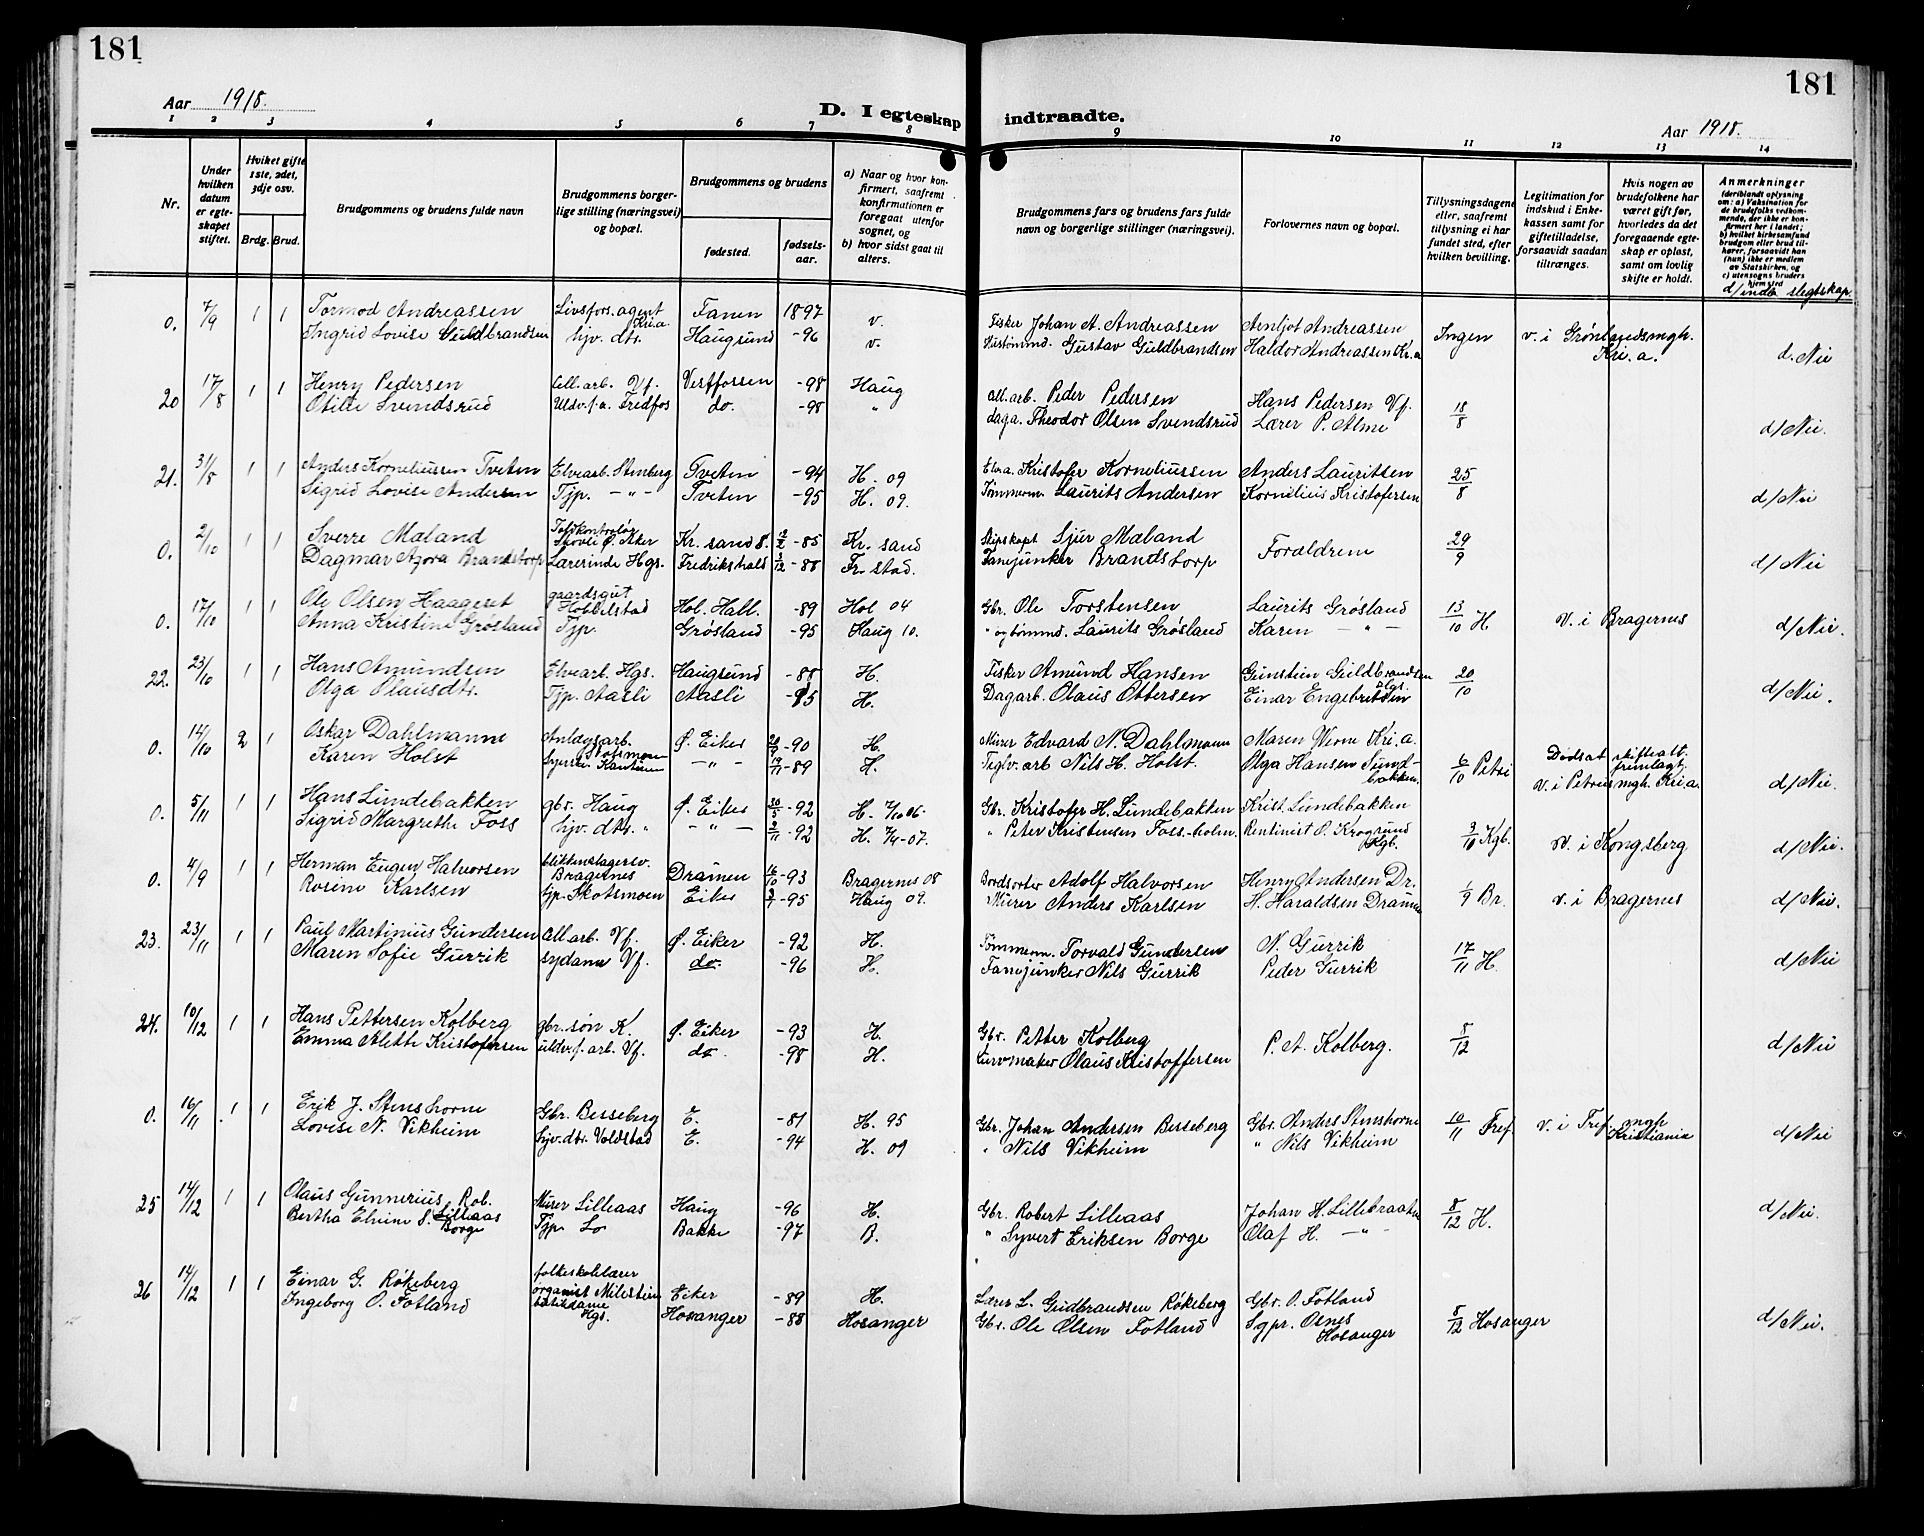 181
181
Aar 1918.
D. I egteskap indtraadte.
Aar 1918.
1 2 3 4 5 6 7 8 9 10 11 12 13 14
Nr.
Under hvilken datum er egteskapet stiftet.
Hvilket gifte 1ste, 2det, 3dje osv.
Brdg. Brud.
Brudgommens og brudens fulde navn
Brudgommens borgerlige stilling (næringsvei) og bopæl.
Brudgommens og brudens
fødested.
fødselsaar.
a) Naar og hvor konfirmert, saafremt konfirmationen er foregaat utenfor sognet, og
b) hvor sidst gaat til alters.
Brudgommens fars og brudens fars fulde navn og borgerlige stillinger (næringsvei).
Forlovernes navn og bopæl.
Tillysningsdagene eller, saafremt tillysning ei har fundet sted, efter hvilken bevilling.
Legitimation for indskud i Enkekassen samt for giftetilladelse, forsaavidt saadan tiltrænges.
Hvis nogen av brudefolkene har været gift før, hvorledes da det foregaaende egteskap er opløst, samt om lovlig skifte er holdt.
Anmerkninger
(deriblandt oplysning om: a) Vaksination for de brudefolks vedkommende, der ikke er konfirmert her i landet; b) hvilket kirkesamfund brudgom eller brud tilhører, forsaavidt han (hun) ikke er medlem av Statskirken, og c) utensogns bruders hjemsted
d/ indb. slegtskap
0. 7/9 1 1 Tormod Andreassen Livsfors. agent Kri.a Fanen 1897 v. Fisker Johan A. Andreassen Arnljot Andreassen Ingen v. i Grønlandsmgh. Kri.a. d. Nei
Ingrid Lovise Guldbrandsen hjv. dtr. Haugsund -96 v. Hustømmd. Gustav Guldbrandsen Haldor Andreassen Kr.a
20 17/8 1 1 Henry Pedersen Cell. arb. Vf. Vestfossen -98 Haug all. arb. Peder Pedersen Hans Pedersen Vf. 18/8 d/Nei.
Otilie Svendsrud Uldv.f.a. Fredfos do. -98 " daga. Theodor Olsen Svendsrud Lærer P. Alme
21. 31/8 1 1 Anders Korneliussen Tveten Elvearb. Stenberg Tveten -94 H. 09 Elvea. Kristofer Korneliussen Anders Lauritsen 25/8 d/Nei
Sigrid Lovise Andersen Tjp. -"- Tveten -95 H. 09. Tømmerm. Laurits Andersen Kornelius Kristofersen
0. 2/10 1 1 Sverre Maland Toldkontrolør Ø. Aker Kr. sand S. 12/2 -85 Kr. sand Skipskapt Sjur Maland Forældrene 29/9 d/Nei
Dagmar Azora Brandstorp Lærerinde Hgs. Fredrikshald 3/12 -88 Fr. stad. Fanejunker Brandstorp
0. 17/10 1 1 Ole Olsen Haageset gaardsgut Hobbelstad Hol. Hall. -89 Hol 04 Gbr. Ole Torstensen Laurits Grøsland 13/10 H. v. i Bragernes d/Nei.
Anna Kristine Grøsland Tjp. Grøsland -95 Haug 10. " og tømmd. Laurits Grøsland Karen -"-
22. 23/10 1 1 Hans Amundsen Elvearb. Hgs. Haugsund -88 H. Fisker Amund Hansen Gunstein Guldbrandsen Hgs. 20/10 d/Nei.
Olga Olausdtr. Tjp. Aasli Aasli -95 H. Dagarb. Olaus Ottersen Einar Engebretsen
0. 14/10 2 1 Oskar Dahlmanne Anlægsarb. Skotsmoen Ø. Eiker 20/9 -90 H. Murer Edvard N. Dahlmann Maren Werne Kri.a. 6/10 Petri Dødsat. skifteatt. fremlagt. d/Nei.
Karen Holst Syerske -"- 19/11 -89 H. Teglv. arb Nils H. Holst. Olga Hansen Sundbakken. v. i Petrus mgh. Kri.a.
0. 5/11 1 1 Hans Lundebakken gbr. Haug Ø. Eiker 30/5 -92 H. 7/10 06. Gbr. Kristofer H. Lundebakken Krist. Lundebakken 3/10 Kgb. v. i Kongsberg d/Nei.
Sigrid Margrethe Foss hjv. dtr. " -"- 9/11 -92 H. 7/4-07. " Peter Kristensen Foss-holm. Rentinist O. Krogsrund Kgb.
0. 4/9 1 1 Herman Eugen Halvorsen blikkenslagersv. Bragernes Dramen 16/10 -93 Bragernes 08 Bordsorter Adolf Halvorsen Henry Andersen Dr. 1/9 Br. v. i Bragernes d/Nei.
Rosine Karlsen tjp. Skotsmoen Eiker 3/7 -95 Haug 09. Murer Anders Karlsen H. Haraldsen Dramen
23. 23/11 1 1 Paul Martinius Gundersen Cell arb. Vf. Ø. Eiker -92 H. Tømmerm. Torvald Gundersen N. Gurrik 17/11 H. d/Nei
Maren Sofie Gurrik sydame Vf. do. -96 H. Fanejunker Nils Gurrik Peder Gurrik
24. 10/12 1 1 Hans Pettersen Kolberg gbr. søn K. Ø. Eiker -93 H. Gbr. Petter Kolberg P. A. Kolberg. 8/12 d/Nei
Emma Alette Kristofersen uldv.f. arb. Vf. do. -98 H. Kurvmaker Olaus Kristoffersen
0. 16/11 1 1 Erik J. Stenshorne Gbr. Besseberg E. -81 H. 95 Gbr. Johan Andersen Besseberg Gbr. Anders Stenshorne 10/11 Tref. v. i Tref. mgh Kristiania d/Nei
Lovise N. Vikheim hjv. dtr. Voldstad E. -94 H. 09 " Nils Vikheim " Nils Vikheim
25 14/12 1 1 Olaus Gunnerius Rob. Lilleaas Murer Lilleaas Haug -96 H. Gbr. Robert Lilleaas Johan H. Lillebraaten 8/12 H. d/Nei.
Bertha Elvine S. Borge Tjp. Lo Bakke -97 B. " Syvert Eriksen Borge Olaf H. -"-
26 14/12 1 1 Einar G. Røkeberg folkeskolelærer organist Milestein Eiker -89 H. Lærer L. Gudbrandsen Røkeberg Gbr. O. Fotland 8/12 Hosanger d/Nei.
Ingeborg O. Fotland butikdame Hgs. Hosanger -88 Hosanger Gbr. Ole Olsen Fotland Sgpr. Osnes Hosanger